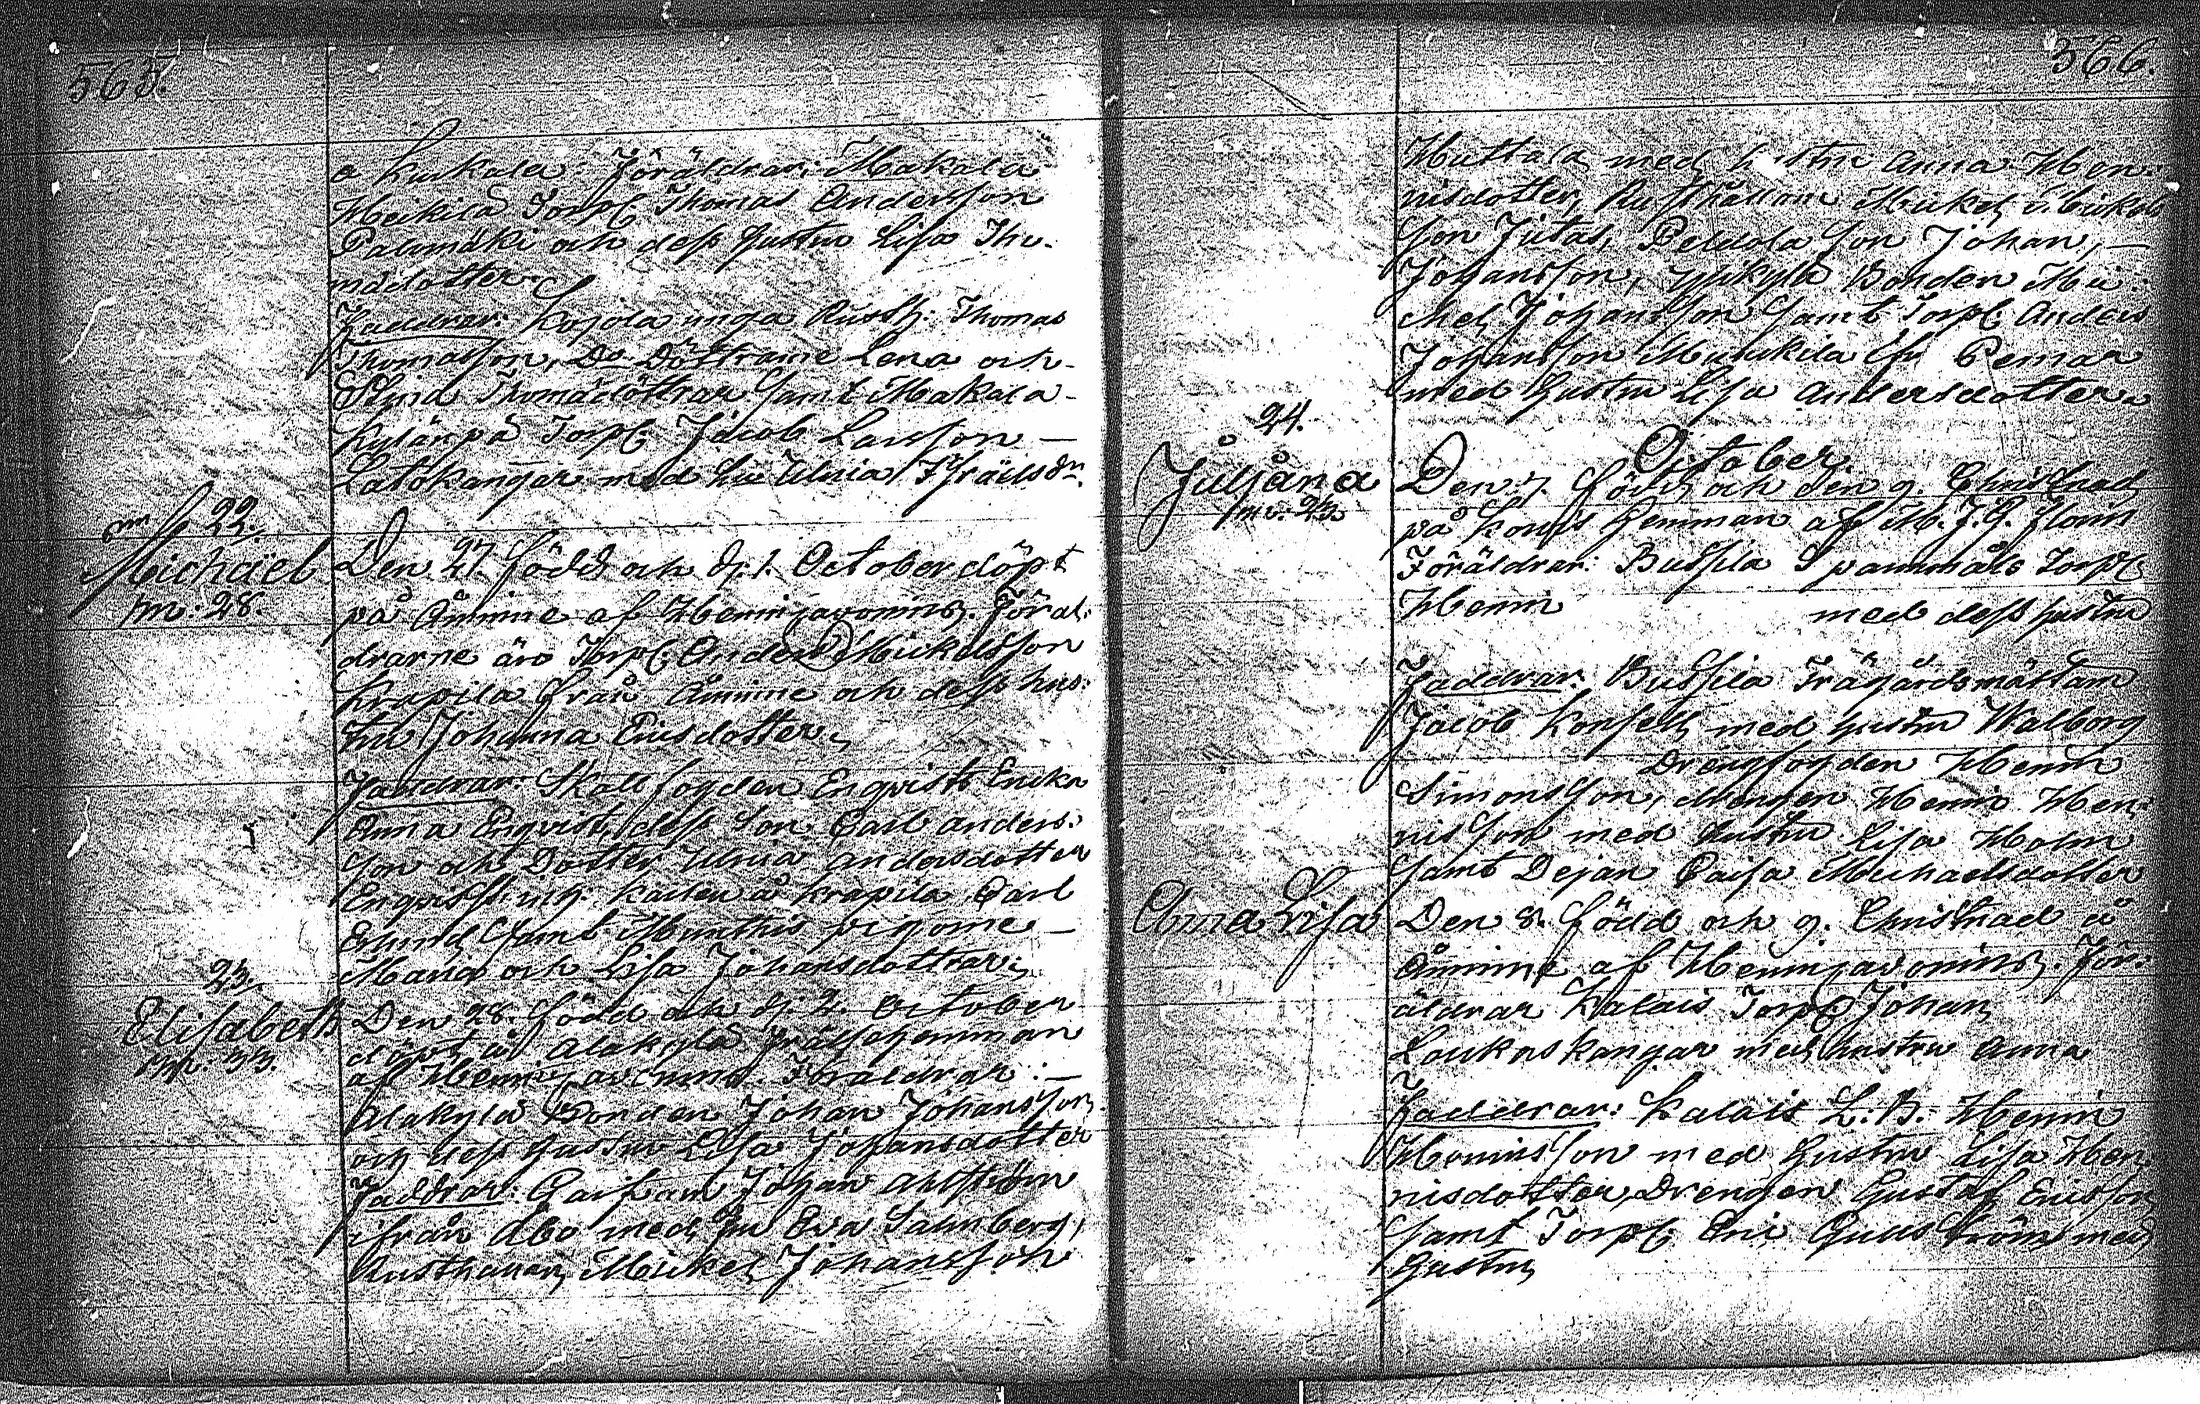 565.
a Kuskala. Föräldrar: Makala
Heikilä Torp. Thomas Andersson
Palamäki och dess hustru Lisa Tho-
mädotter
Faddrar: Kojola unga Rusth: Thomas
Thomasson, Do Döttrarne Lena och
Thomädöttrar samt Makala
Kylänpä Torp. Jacob Larsson —
Latokangar med hu Ulrica
22.
Michaël
m. 28.
Den 27. född och d. 1. October döpt
på Åminne af Henr Föräl-
drarne äro Torp. Anders Mickelsson
Krapila från Åminne och dess hus-
tru Johanna Ericsdotter
Faddrar: Skallfogden Enqvists Encka
Anna Enqvist, dess Son Carl Anders-
son och Dotter Ulrica Andersdotter
Enqvist, karlen å Krapila Carl
samt pigorne —
Maria och Lisa Johansdöttrar
23.
Elisabeth
m. 33.
Den 28. född och d. 2. October
döpt å Alakylä Frälsehemman
af Henr Föräldrar: —
Alakylä Bonden Johan Johansson
och dess hustru Lisa Johansdotter
Faddrar: Johan Ahlström
ifrån Åbo med fru Eva Salmberg,
Rusthållaren Mickel Johansson
566.
Huttala med hustru Anna Hen-
risdotter, Rusthållaren Mickel Mickels
son Jutas, Peldola Son Johan, —
Johansson, Ypkylä Bonden Mi-
chel Johansson samt Torp. Anders
Johansson ifr Pemar
med hustru Lisa Andersdotter
October.
24.
Juljana
m. 43.
Den 7. född och den 9. Christnad
på Hemman af M. J. G.
Föräldrar: Bussila Torp.
Henric med dess hustru
Faddrar: Bussila Trägårdsmästarn
Jacob med hustru Walborg
Drengfogden Henric
Simonsson, drengen Henric Hen-
risson med hustru Lisa Holm
samt Dejan Caisa Michaelsdotter
Anna Lisa
Den 8. född och 9. Christnad å
Åminne af Henr För-
äldrar Kalais Torp. Johan
Laukaskangar med hustru Anna
Faddrar: Kalais L: B: Henric
Henricsson med hustru Lisa Hen
risdotter, Drengen Gustaf Ericsson
samt Torp. Eric med
hustru